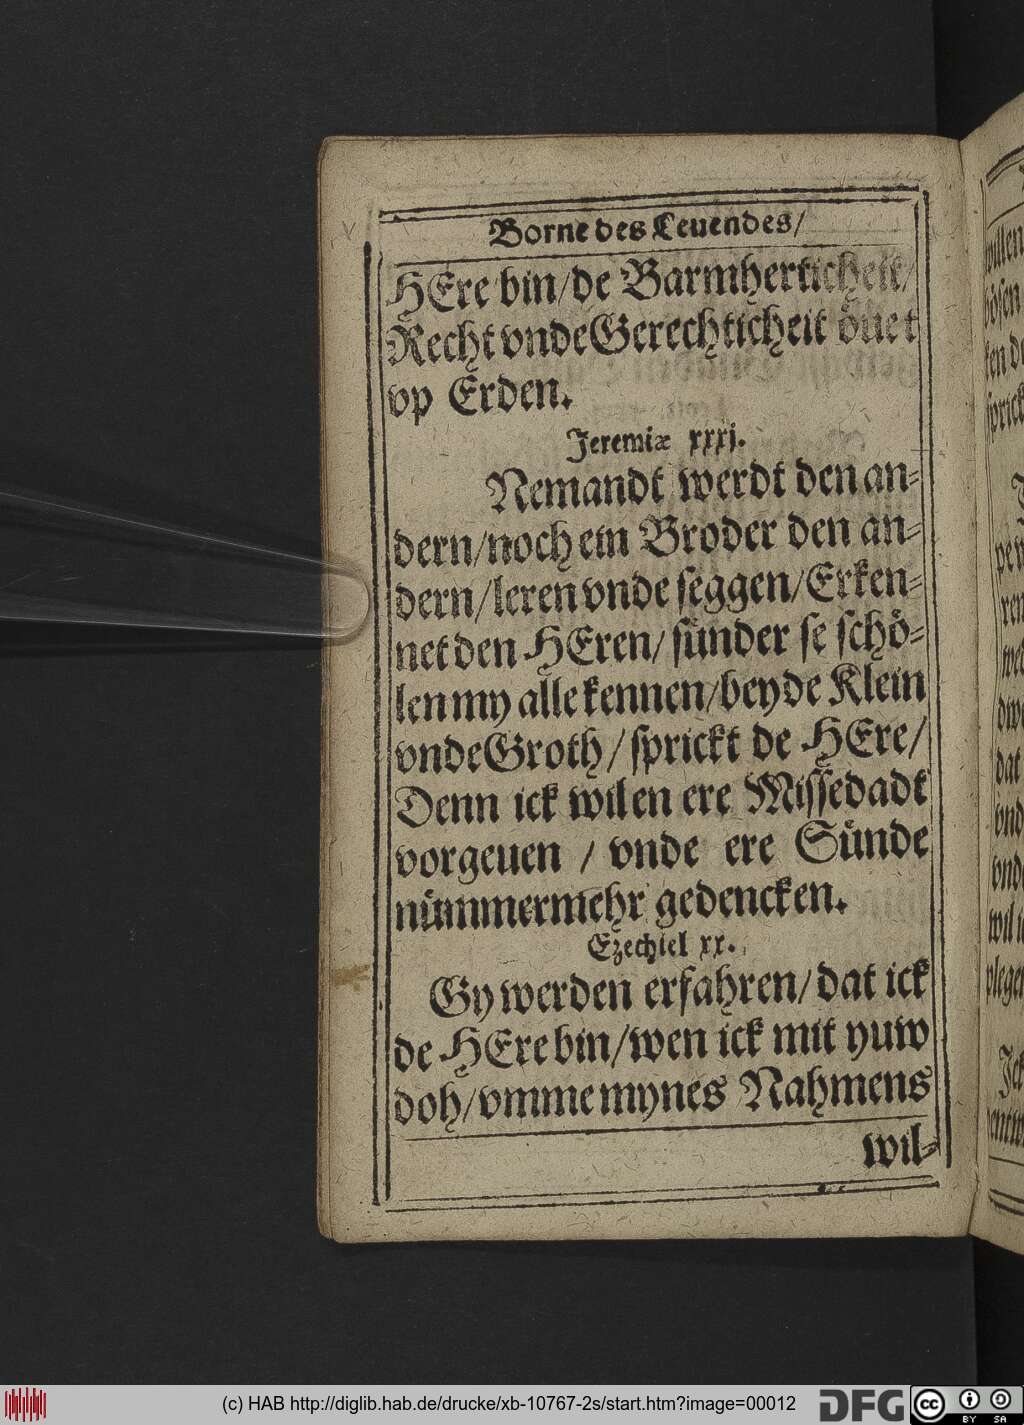 Borne des Leuendes/
HEre bin/de Barmherticheit/
Recht vnde Gerechticheit öuet
vp Erden.
Jeremiæ xxxj.
Nemandt werdt den an⸗
dern/noch ein Broder den an⸗
dern/leren vnde seggen/Erken⸗
net den HEren/sünder se schö⸗
len my alle kennen/beyde Klein
vnde Groth/sprickt de HEre/
Denn ick wil en ere Missedadt
vorgeuen / vnde ere Sünde
nümmermehr gedencken.
Ezechiel xx.
Gy werden erfahren/dat ick
de HEre bin/wen ick mit yuw
doh/vmme mynes Nahmens
wil⸗
(c) HAB http://diglib.hab.de/drucke/xb-10767-2s/start.htm?image=00012
DFG
cc
BY SA